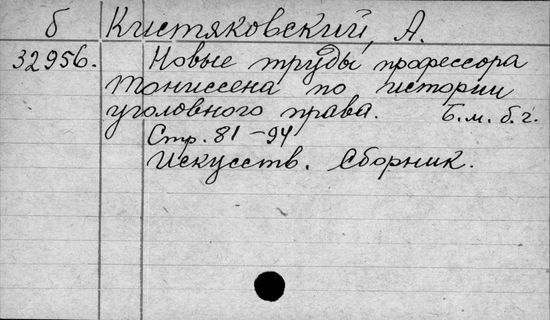 б Кистяковский, А.
32956. Новые труды профессора
Тониссена по истории
уголовного права. Б.м. б.г.
Стр. 81-94
Искусств. Сборник.